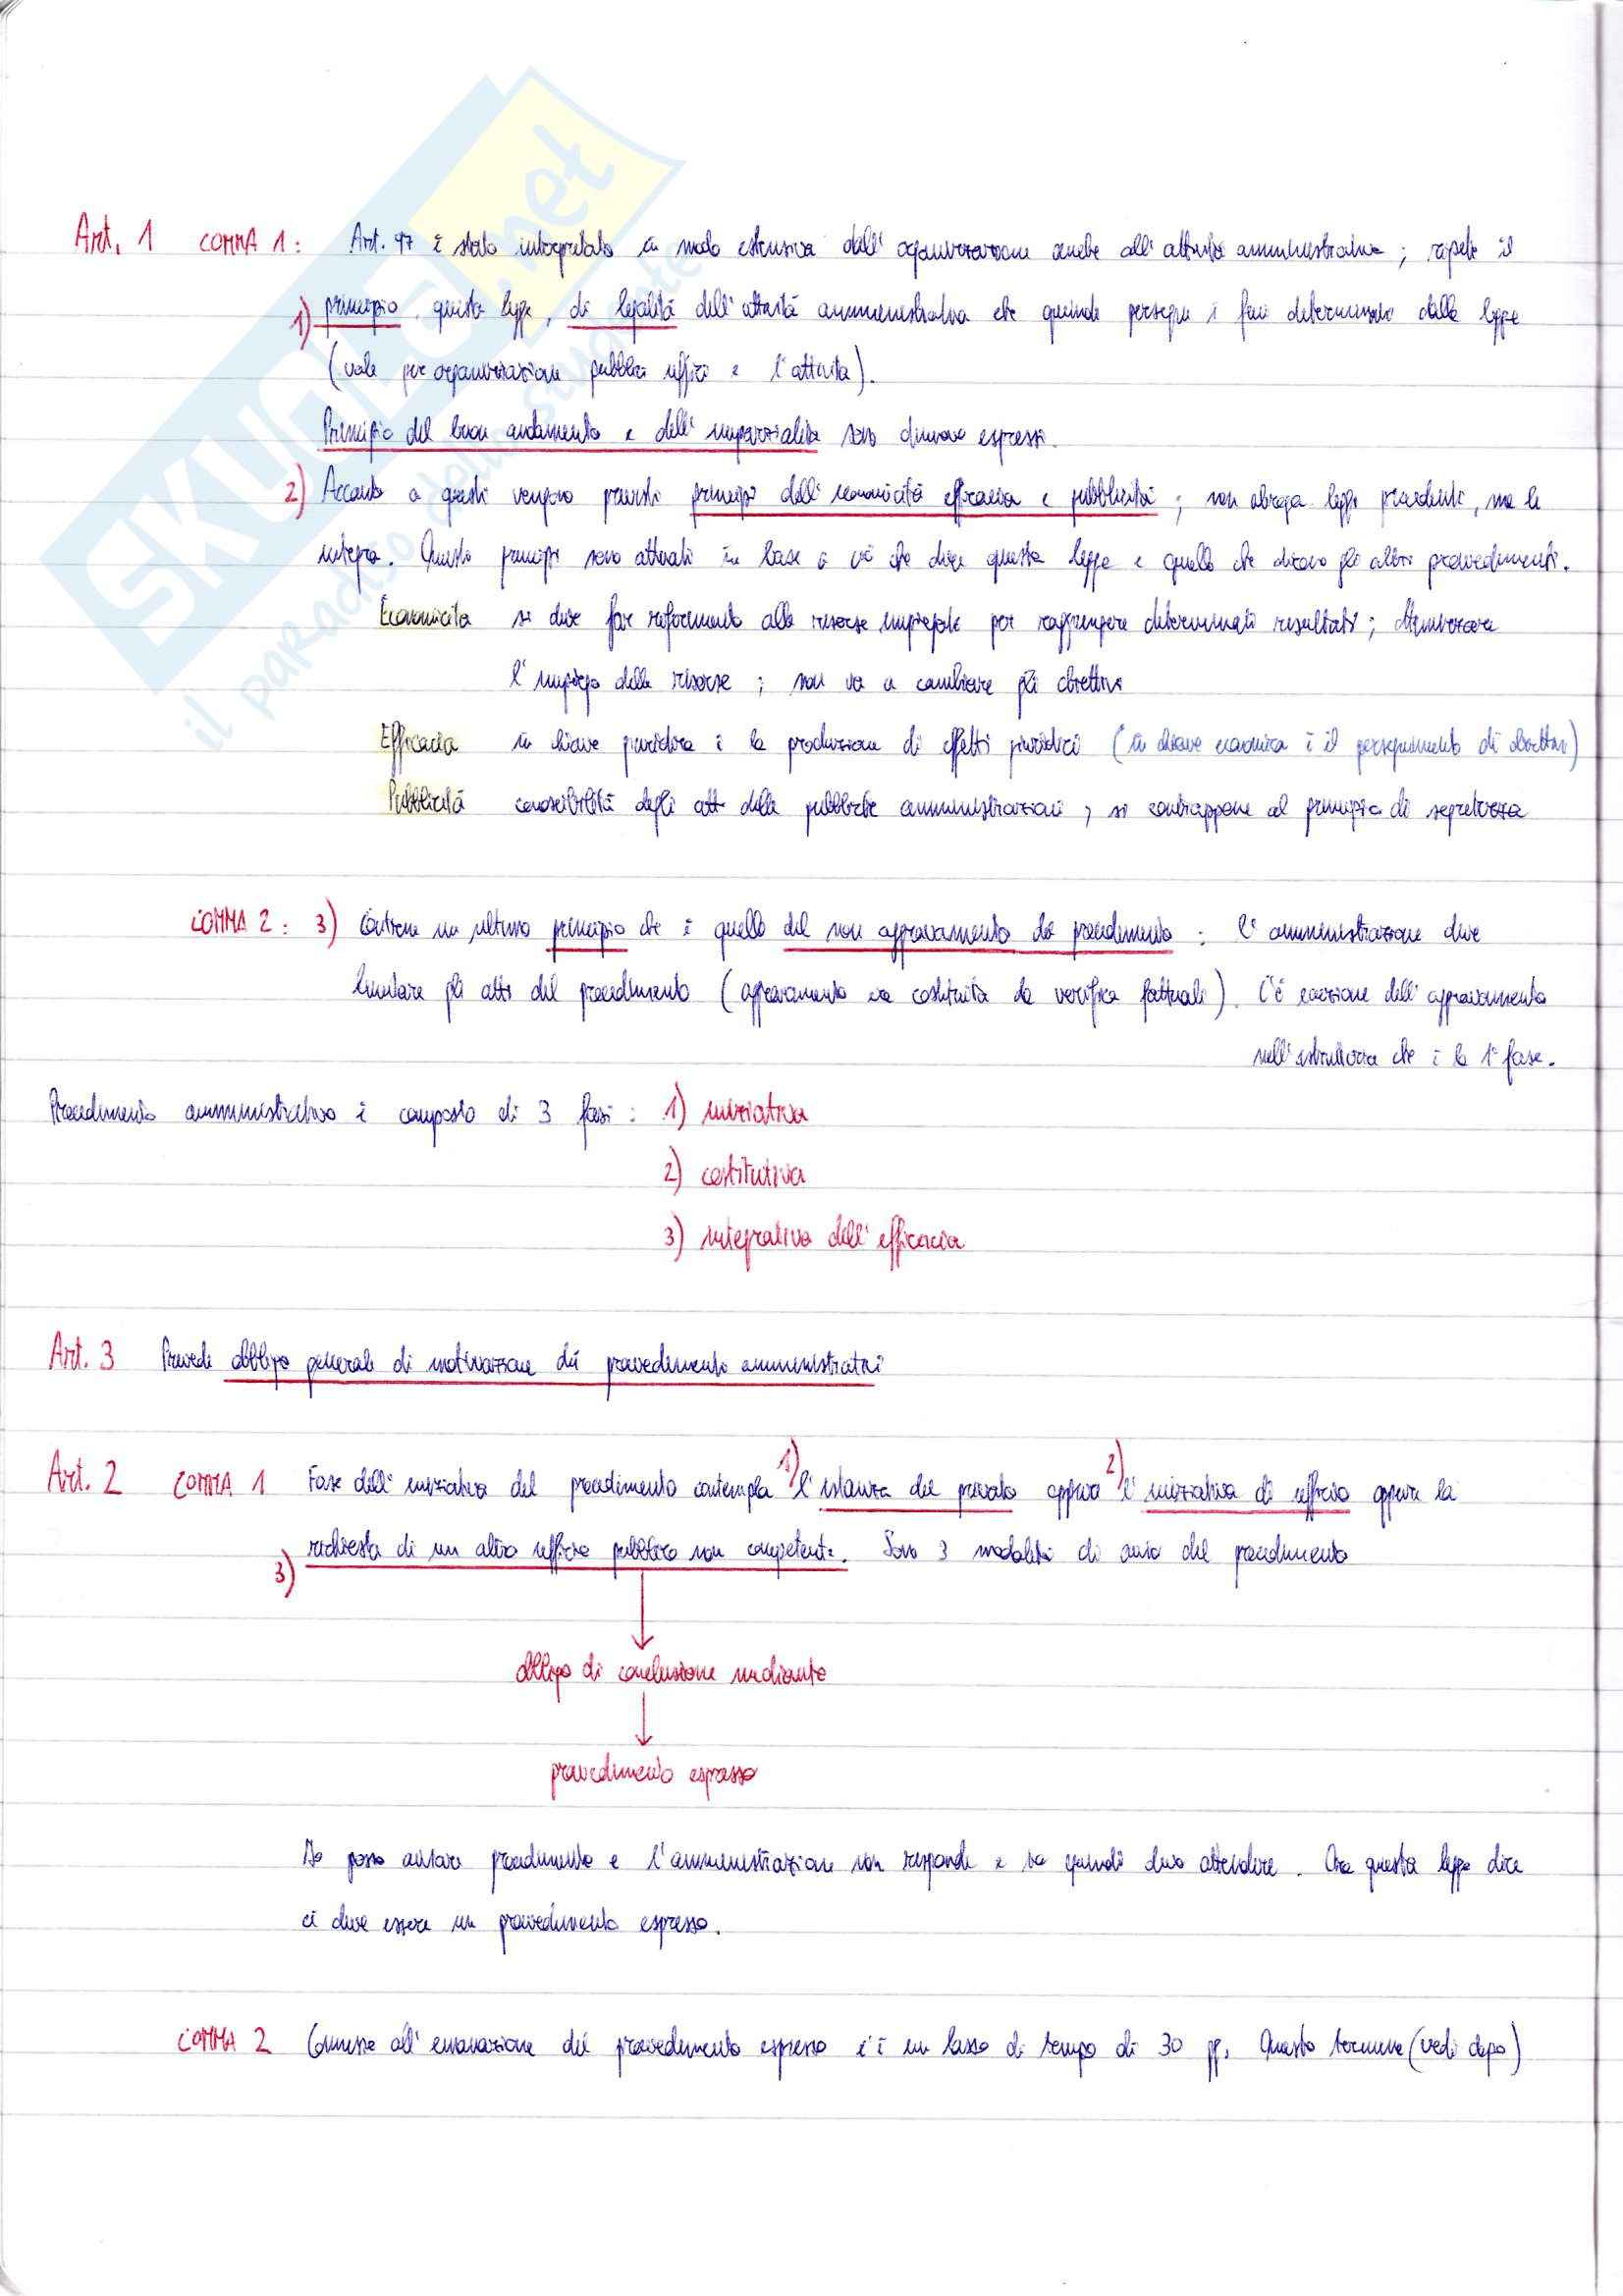 SKUOLA.net
il paradiso dello studente
Art. 1 COMMA 1: Art. 97 è stato interpretato in modo estensivo dall'organizzazione anche all'attività amministrativa; ripete il
1) principio, questa legge, di legalità dell'attività amministrativa che quindi persegue i fini determinati dalla legge
(vale per organizzazione pubblici uffici e l'attività).
Principio del buon andamento e dell'imparzialità sono dunque espressi.
2) Accanto a questi vengono previsti principi dell'economicità efficacia e pubblicità; non abroga leggi precedenti, ma le
integra. Questi principi sono attuati in base a ciò che dice questa legge e quello che dicono gli altri provvedimenti.
Economicità si deve far riferimento alle risorse impiegate per raggiungere determinati risultati;
l'impiego delle risorse; non va a cambiare gli obiettivi
Efficacia in chiave giuridica è la produzione di effetti giuridici (in chiave economica è il perseguimento di obiettivi)
Pubblicità conoscibilità degli atti delle pubbliche amministrazioni, si contrappone al principio di segretezza
COMMA 2: 3) Contiene un ultimo principio che è quello del non aggravamento del procedimento: l'amministrazione deve
limitare gli atti del procedimento (aggravamento va costituito da verifica fattuali). C'è eccezione dell'aggravamento
nell'istruttoria che è la 1ª fase.
Procedimento amministrativo è composto di 3 fasi: 1) iniziativa
2) costitutiva
3) integrativa dell'efficacia
Art. 3 Prevede obbligo generale di motivazione dei provvedimenti amministrativi
Art. 2 COMMA 1 Fase dell'iniziativa del procedimento contempla 1) l'istanza del privato oppure 2) l'iniziativa di ufficio oppure la
3) richiesta di un altro ufficio pubblico non competente. Sono 3 modalità di avvio del procedimento
obbligo di conclusione mediante
provvedimento espresso
Io posso avviare procedimento e l'amministrazione non risponde e io quindi devo attendere. Ora questa legge dice
ci deve essere un provvedimento espresso.
COMMA 2 Connesse all'emanazione del provvedimento espresso c'è un lasso di tempo di 30 gg. Questo termine (vedi dopo)